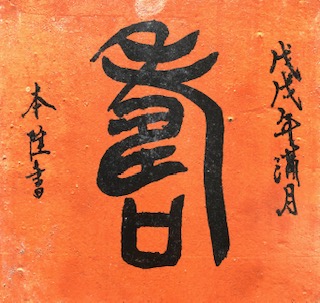 戊戌年滿月
壽
本陞書